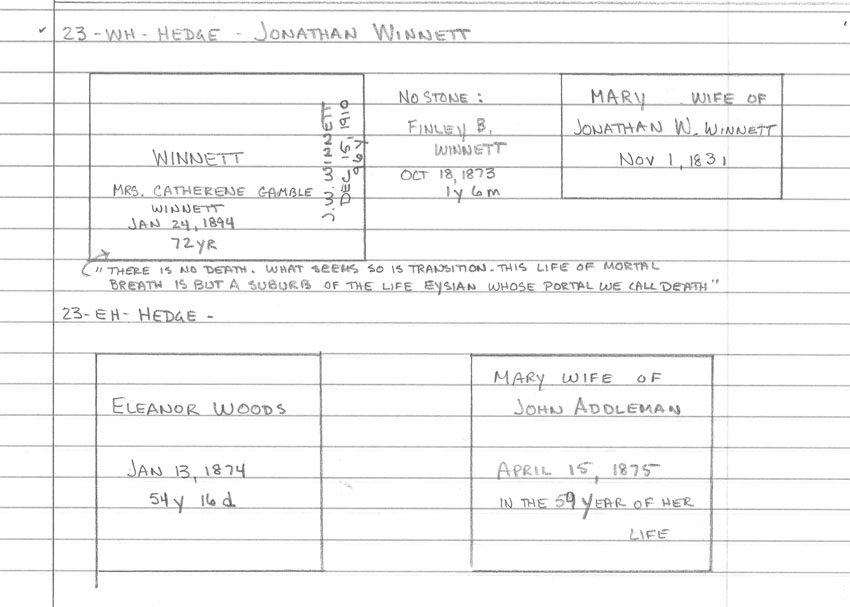 23-WH-HEDGE - JONATHAN WINNETT
WINNETT
MRS. CATHERENE GAMBLE
WINNETT
JAN 24, 1894
72 YR
J.3. 3 WINNETT
1910
NO STONE:
FINLEY B.
WINNETT
OCT 18, 1873
1y 6m
MARY WIFE OF
JONATHAN W. WINNETT
NOV 1, 1831
"THERE IS NO DEATH. WHAT SEEMS SO IS TRANSITION. THIS LIFE OF MORTAL
BREATH IS BUT A SUBURB OF THE LIFE EYSIAN WHOSE PORTAL WE CALL DEATH"
23-EH-HEDGE -
ELEANOR WOODS
JAN 13, 1874
54y 16d
MARY WIFE OF
JOHN ADDLEMAN
APRIL 15, 1875
IN THE 59 YEAR OF HER
LIFE